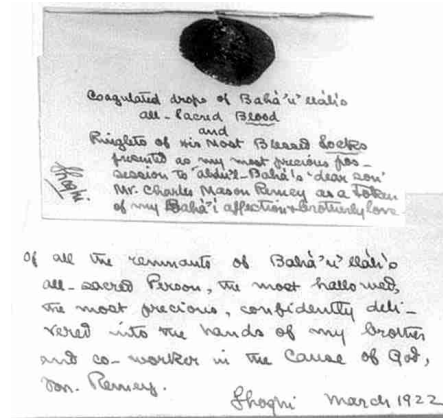 Coagulated drops of Bahá'u'lláh's
all-Sacred Blood
and
Ringlets of His Most Blessed Locks
presented as my most precious pos-
session to 'Abdu'l-Bahá's 'dear son'
Mr. Charles Mason Remey as a token
of my Bahá'í affection & brotherly love.
Shoghi
Of all the remnants of Bahá'u'lláh's
all-sacred Person, the most hallowed,
the most precious, confidently deli-
vered into the hands of my brother
and co-worker in the Cause of God,
Mr. Remey.
Shoghi March 1922